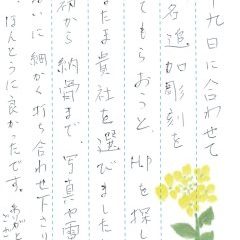 十九日に合わせて
名追加彫刻を
てもらおうと、HPを探し
たま貴社を選びました
から納骨まで、写真や電
いに細かく打ち合わせ下さり
、ほんとうに良かったです。ありがと